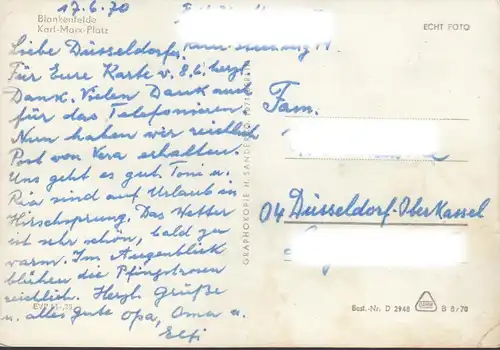 17.6.70
Blankenfelde
Karl-Marx-Platz
ECHT FOTO
Liebe Düsseldorfer,
Für Eure Karte v. 8.6. herzl.
Dank. Vielen Dank auch
für das Telefonieren
Nun haben wir reichlich
Post von Vera erhalten.
Uns geht es gut. Toni u.
Ria sind auf Urlaub in
Hirschsprung. Das Wetter
ist sehr schön, bald zu
warm. Im Augenblick
blühen die Pfingstrosen
reichlich. Herzl. Grüße
u. alles gute Opa, Oma u.
Elfi
GRAPHOKOPIE H. SANDER KG
Fam.
04 Düsseldorf-Oberkassel
Best.-Nr. D 2948
B 8/70